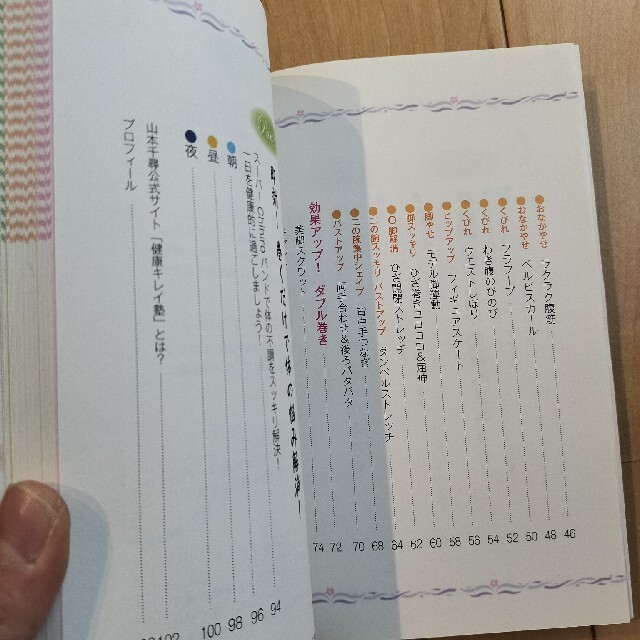 おなかやせ ラクラク腹筋 46
おなかやせ ペルビスカール 48
くびれ フラフープ 50
くびれ わき腹のびのび 52
くびれ ウエストしぼり 54
ヒップアップ フィギュアスケート 56
脚やせ 58
脚スッキリ ひざ巻きコロコロ&屈伸 60
O脚解消 ひざ開閉ストレッチ 62
二の腕スッキリ バストアップ ダンベルストレッチ 64
二の腕集中シェイプ 背面手つなぎ 68
バストアップ 両手合わせ&後ろパタパタ 70
72
効果アップ! ダブル巻き
美脚スクワット 74
巻くだけで体の悩み解消!
スーパーChihiroバンドで体の不調をスッキリ解決!
一日を健康的に過ごしましょう! 94
朝 96
昼 98
夜 100
山本千尋公式サイト「健康キレイ塾」とは?
プロフィール